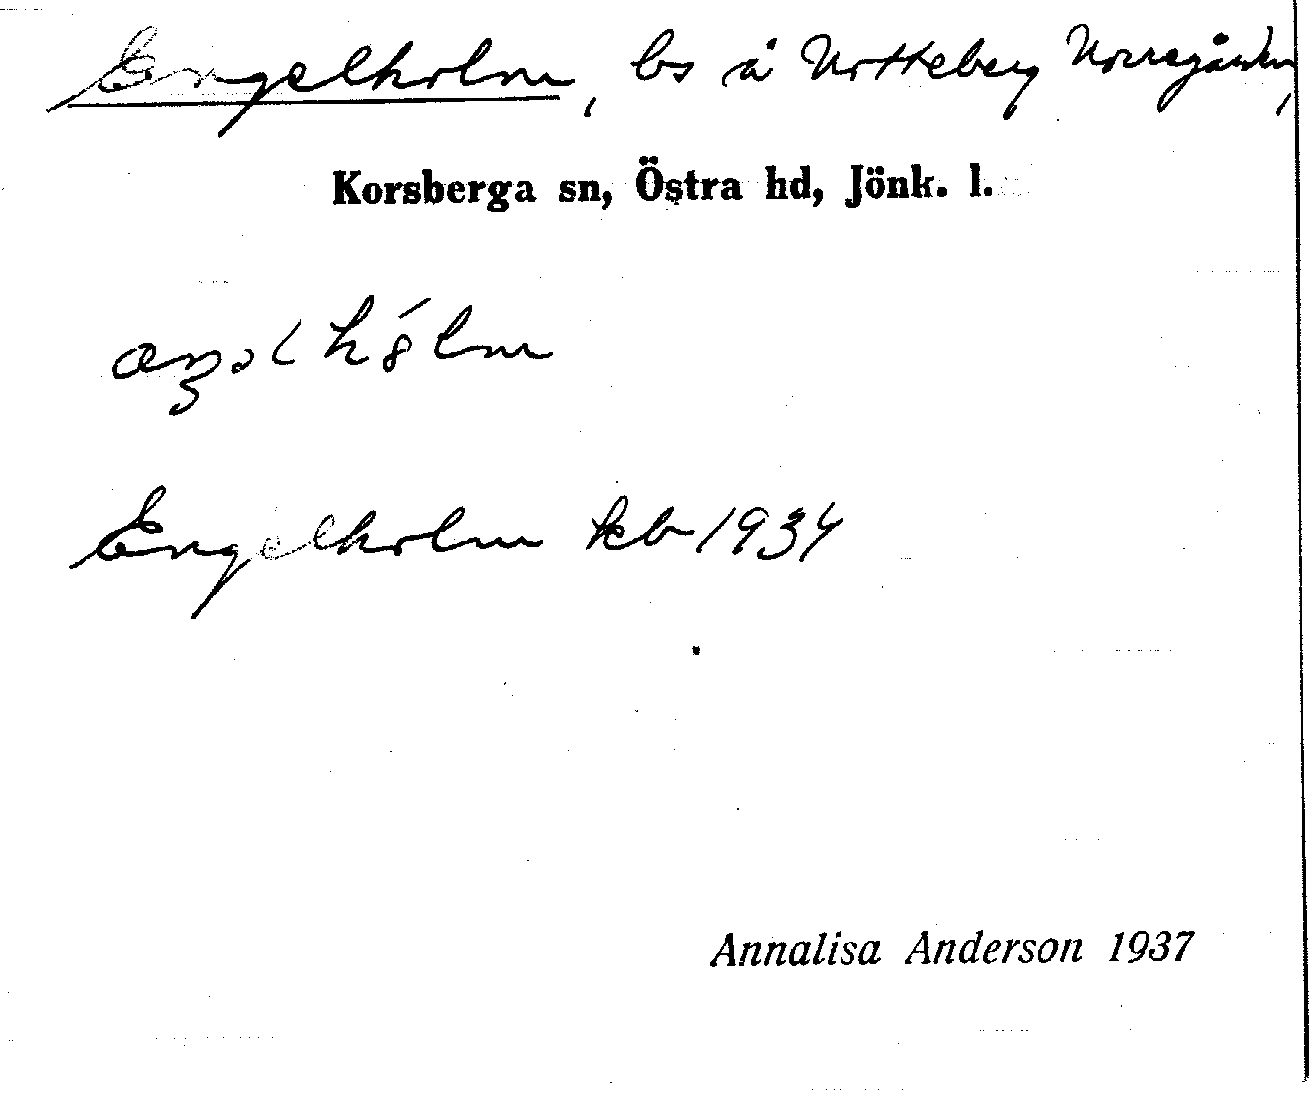 Engelholm, bs å Notteberg Norregården,
Korsberga sn, Östra hd, Jönk. l.
Engelholm kb 1934
Annalisa Anderson 1937